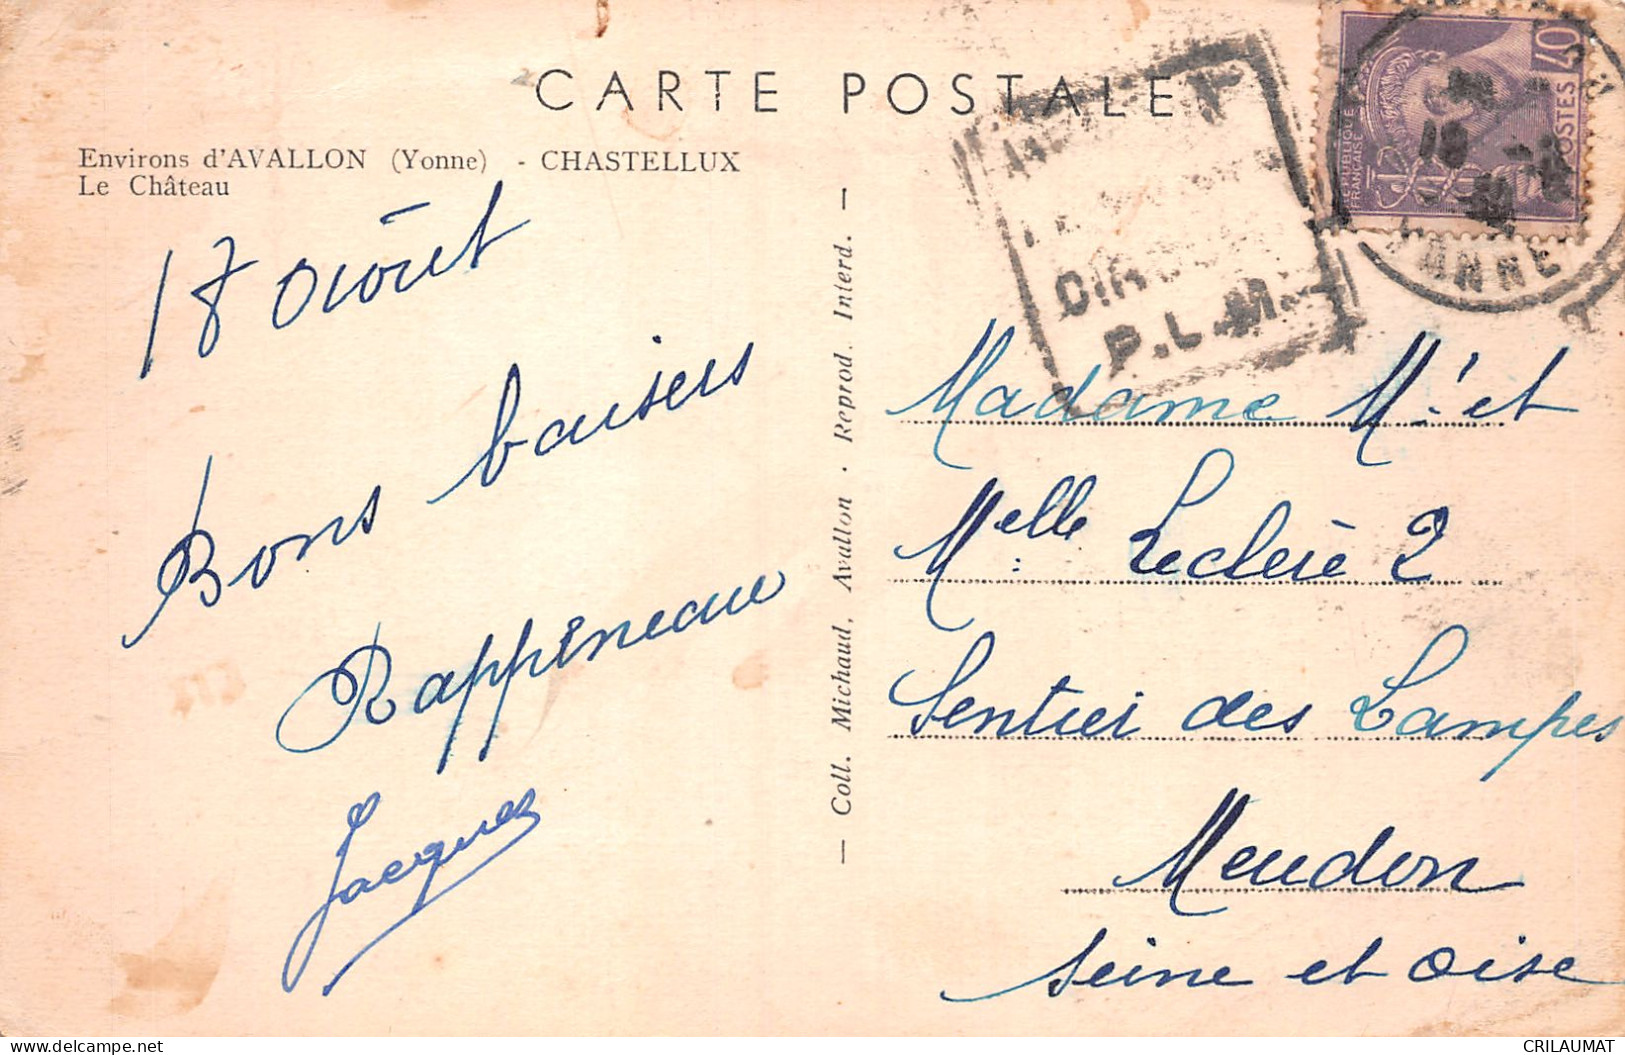 CARTE POSTALE
Environs d'AVALLON (Yonne) - CHASTELLUX
Le Château
18 Août
Bons baisers
Rappeneau
Jacques
— Coll. Michaud, Avallon · Reprod. Interd. —
40
POSTES
REPUBLIQUE
FRANÇAISE
P.L.M.
YONNE
Madame Mr et
Melle Leclère 2
Sentier des Lampes
Meudon
Seine et Oise
delcampe.net
CRILAUMAT